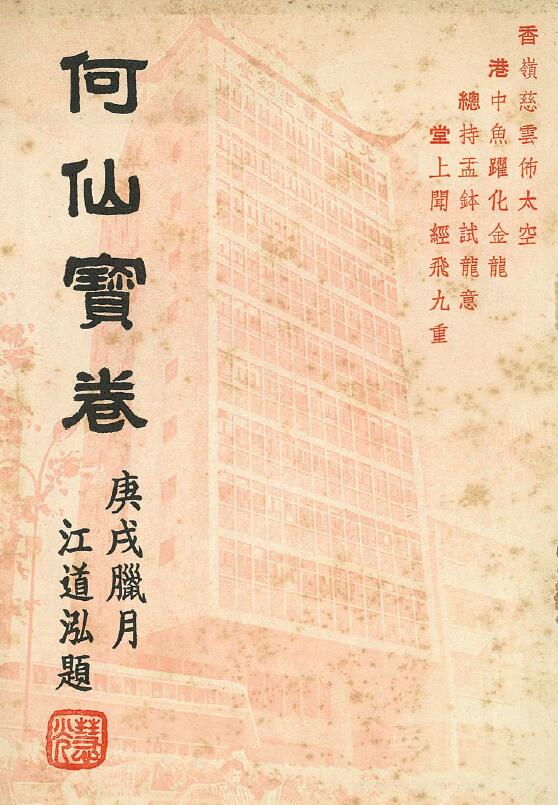 香嶺慈雲佈太空
港中魚躍化金龍
總持盂鉢試龍意
堂上聞經飛九重
何仙寶卷
庚戌臘月
江道泓題